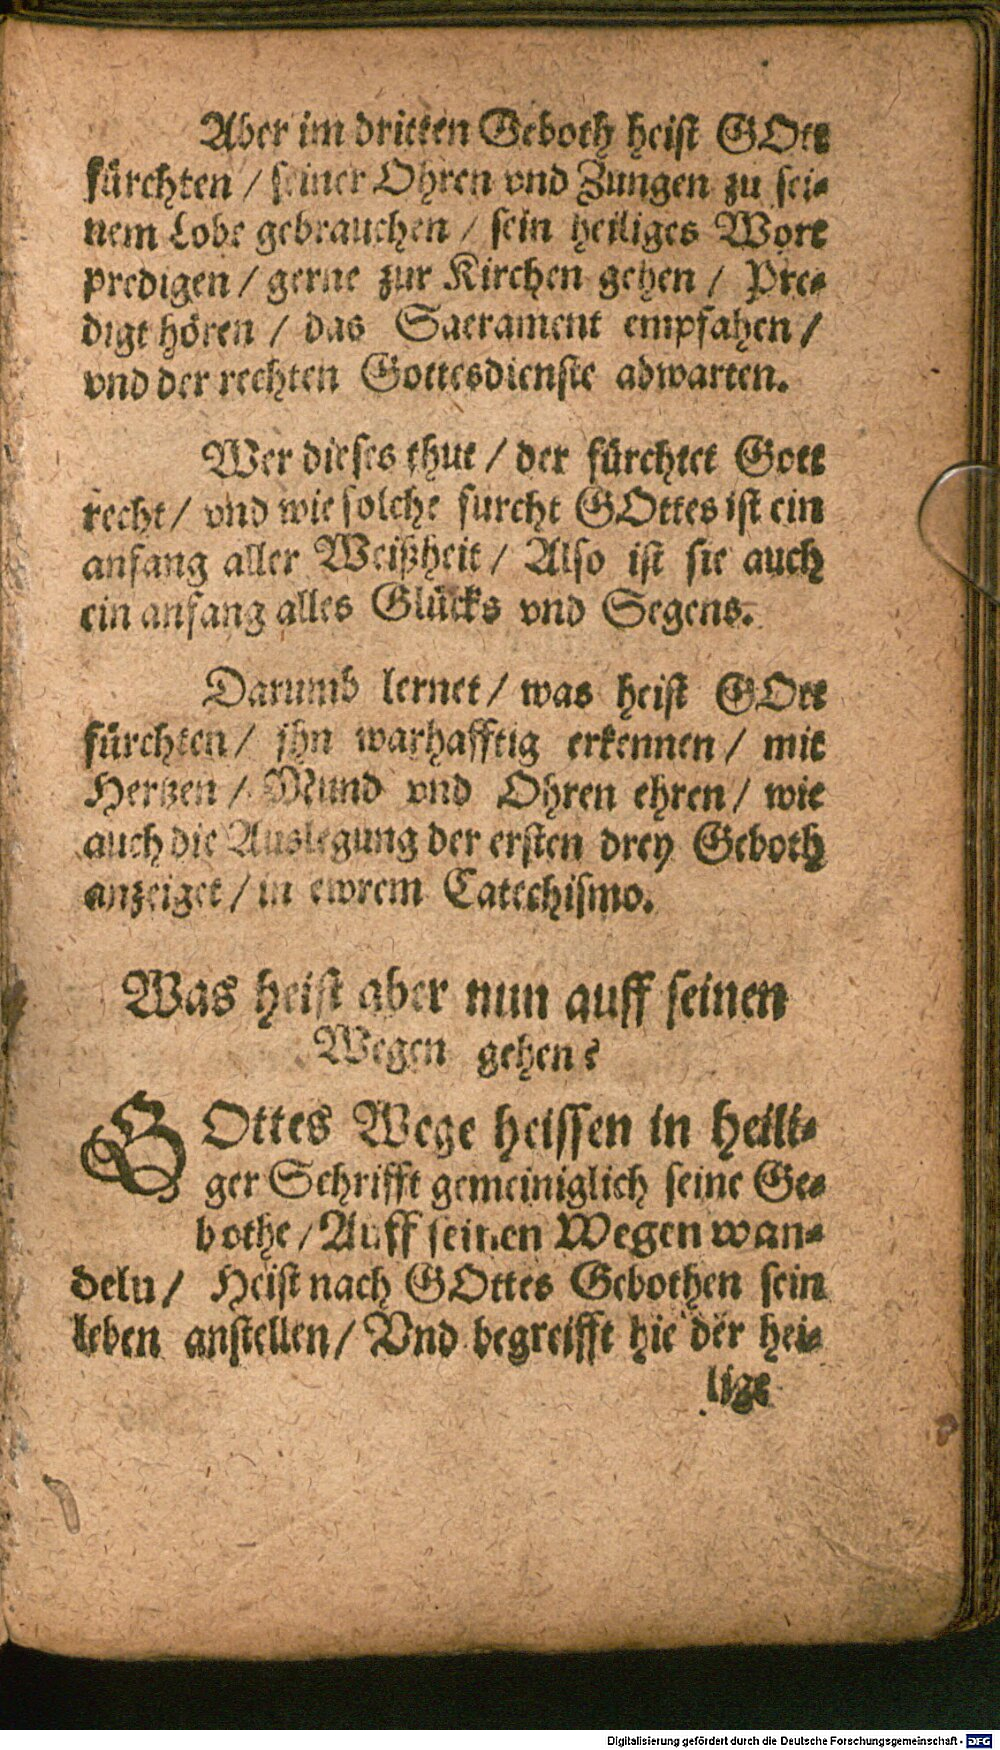 Aber im dritten Geboth heist GOtt
fürchten / seiner Ohren vnd Zungen zu sei-
nem Lobe gebrauchen / sein heiliges Wort
predigen / gerne zur Kirchen gehen / Pre-
digt hören / das Sacrament empfahen /
vnd der rechten Gottesdienste adwarten.
Wer dieses thut / der fürchtet Gott
recht / vnd wie solche furcht GOttes ist ein
anfang aller Weißheit / Also ist sie auch
ein anfang alles Glücks vnd Segens.
Darumb lernet / was heist GOtt
fürchten / jhn warhafftig erkennen / mit
Hertzen / Mund vnd Ohren ehren / wie
auch die Auslegung der ersten drey Geboth
anzeiget / in ewrem Catechismo.
Was heist aber nun auff seinen
Wegen gehen?
GOttes Wege heissen in heili-
ger Schrifft gemeiniglich seine Ge-
bothe / Auff seinen Wegen wan-
deln / Heist nach GOttes Gebothen sein
leben anstellen / Vnd begreifft hie der hei-
lige
Digitalisierung gefördert durch die Deutsche Forschungsgemeinschaft - DFG